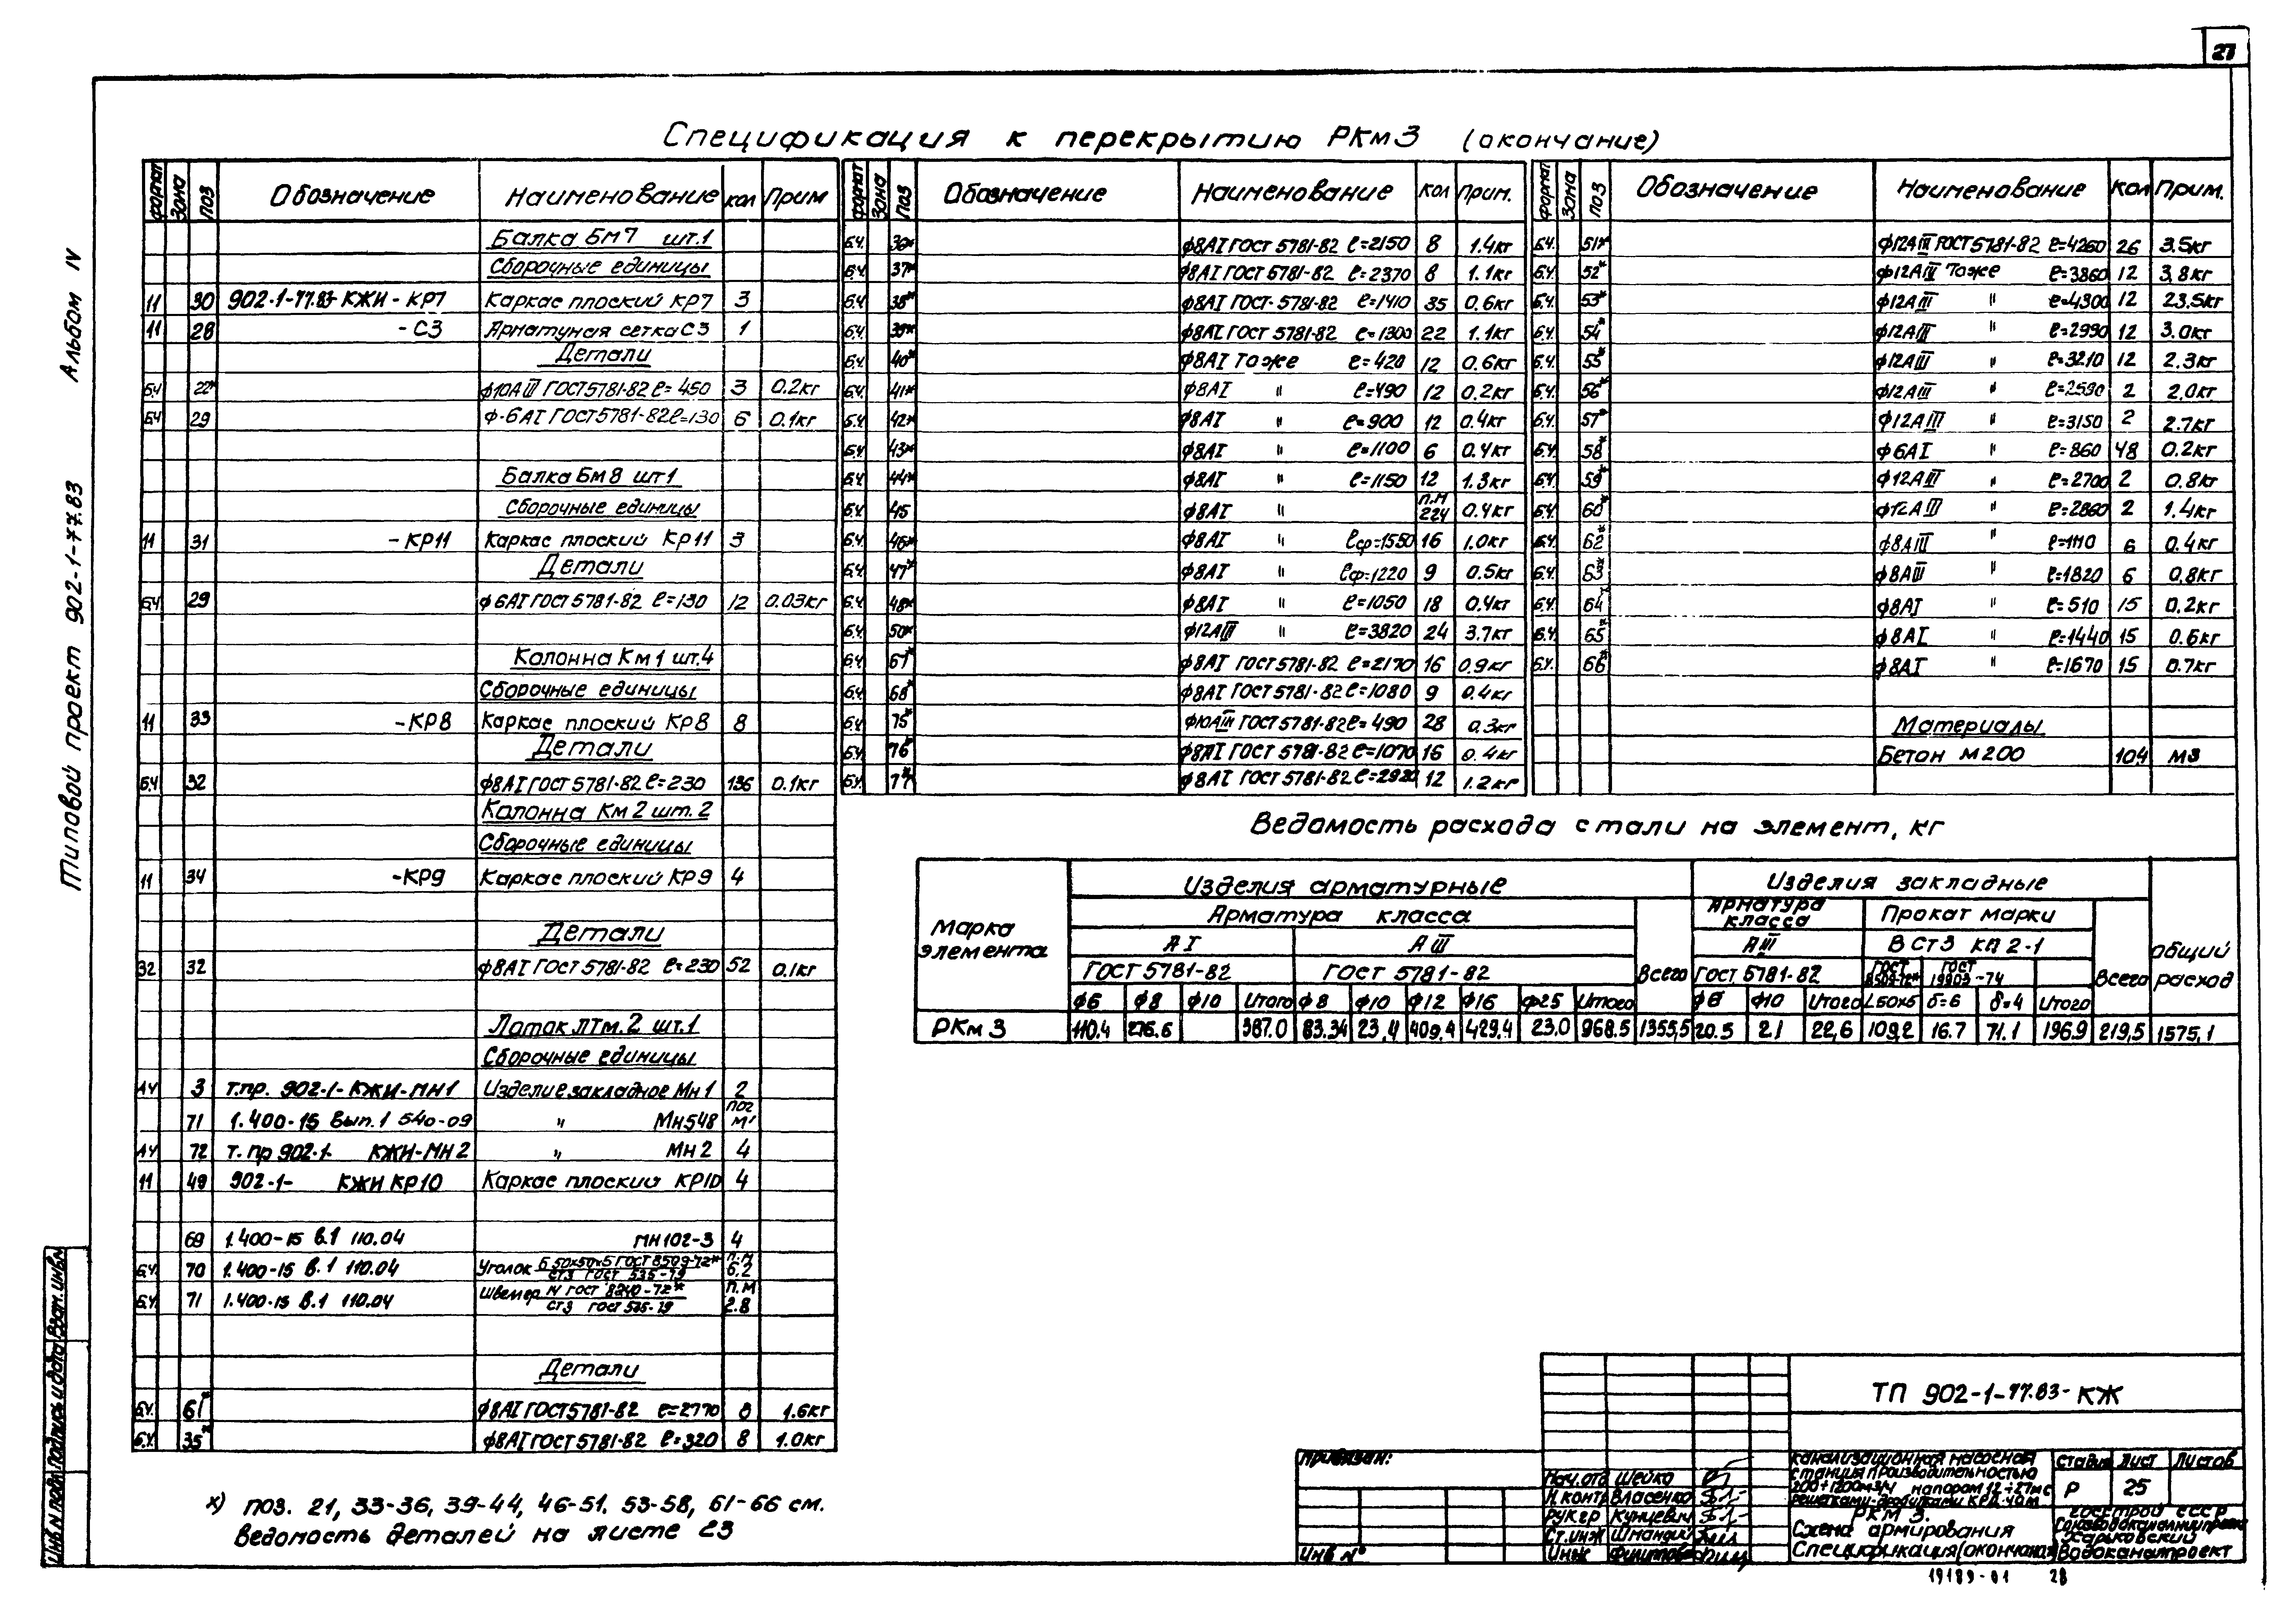 27
Спецификация к перекрытию РКм3 (окончание)
Формат Зона Поз Обозначение Наименование кол Прим
Балка Бм7 шт.1
Сборочные единицы
11 30 902-1-77.83-КЖИ-КР7 Каркас плоский КР7 3
11 28 -С3 Арматуная сетка С3 1
Детали
Б.Ч 22* ф10АIII ГОСТ 5781-82 ℓ=450 3 0.2кг
Б.Ч 29 ф-6АI ГОСТ 5781-82 ℓ=130 6 0.1кг
Балка Бм8 шт1
Сборочные единицы
11 31 -КР11 Каркас плоский КР11 3
Детали
Б.Ч 29 ф6АI ГОСТ 5781-82 ℓ=130 12 0.03кг
Колонна Км1 шт.4
Сборочные единицы
11 33 -КР8 Каркас плоский КР8 8
Детали
Б.Ч 32 ф8АI ГОСТ 5781-82 ℓ=230 136 0.1кг
Колонна Км2 шт.2
Сборочные единицы
11 34 -КР9 Каркас плоский КР9 4
Детали
32 32 ф8АI ГОСТ 5781-82 ℓ=230 52 0.1кг
Лоток ЛТм.2 шт.1
Сборочные единицы
А4 3 т.пр. 902-1-КЖИ-МН1 Изделие закладное Мн1 2
71 1.400-15 Вып.1 540-09 " Мн548 пог м1
А4 72 т.пр 902-1- КЖИ-МН2 " Мн2 4
11 49 902-1- КЖИ КР10 Каркас плоский КР10 4
69 1.400-15 в.1 110.04 МН102-3 4
Б.Ч. 70 1.400-15 в.1 110.04 Уголок Б 50х50х5 ГОСТ 8509-72* / Ст3 ГОСТ 535-79 п.м 6.2
Б.Ч. 71 1.400-15 в.1 110.04 Швеллер N ГОСТ 8240-72* / Ст3 ГОСТ 535-79 п.м 2.8
Детали
Б.Ч. 61* ф8АI ГОСТ 5781-82 ℓ=2770 8 1.6кг
Б.Ч. 35* ф8АI ГОСТ 5781-82 ℓ=320 8 1.0кг
х) поз. 21, 33-36, 39-44, 46-51. 53-58, 61-66 см.
Ведомость деталей на листе 23
Формат Зона Поз Обозначение Наименование кол Прим.
Б.Ч. 36* ф8АI ГОСТ 5781-82 ℓ=2150 8 1.4кг
Б.Ч. 37* ф8АI ГОСТ 5781-82 ℓ=2370 8 1.1кг
Б.Ч. 38* ф8АI ГОСТ-5781-82 ℓ=1410 35 0.6кг
Б.Ч. 39* ф8АI ГОСТ 5781-82 ℓ=1300 22 1.1кг
Б.Ч. 40* ф8АI То же ℓ=420 12 0.6кг
Б.Ч. 41* ф8АI " ℓ=490 12 0.2кг
Б.Ч. 42* ф8АI " ℓ=900 12 0.4кг
Б.Ч. 43* ф8АI " ℓ=1100 6 0.4кг
Б.Ч. 44* ф8АI " ℓ=1150 12 1.3кг
Б.Ч. 45 ф8АI " п.м 224 0.4кг
Б.Ч. 46* ф8АI " ℓср=1550 16 1.0кг
Б.Ч. 47* ф8АI " ℓср=1220 9 0.5кг
Б.Ч. 48* ф8АI " ℓ=1050 18 0.4кг
Б.Ч. 50* ф12АIII " ℓ=3820 24 3.7кг
Б.Ч. 67* ф8АI ГОСТ 5781-82 ℓ=2170 16 0.9кг
Б.Ч. 68* ф8АI ГОСТ 5781-82 ℓ=1080 9 0.4кг
Б.Ч. 75* ф10АIII ГОСТ 5781-82 ℓ=490 28 0.3кг
Б.Ч. 76* ф8АI ГОСТ 5781-82 ℓ=1070 16 0.4кг
Б.Ч. 77* ф8АI ГОСТ 5781-82 ℓ=2920 12 1.2кг
Формат Зона Поз Обозначение Наименование Кол Прим.
Б.Ч. 51* ф12АIII ГОСТ 5781-82 ℓ=4260 26 3.5кг
Б.Ч. 52* ф12АIII То же ℓ=3860 12 3.8кг
Б.Ч. 53* ф12АIII " ℓ=4300 12 23.5кг
Б.Ч. 54* ф12АIII " ℓ=2990 12 3.0кг
Б.Ч. 55* ф12АIII " ℓ=3210 12 2.3кг
Б.Ч. 56* ф12АIII " ℓ=2590 2 2.0кг
Б.Ч. 57* ф12АIII " ℓ=3150 2 2.7кг
Б.Ч. 58* ф6АI " ℓ=860 48 0.2кг
Б.Ч. 59* ф12АIII " ℓ=2700 2 0.8кг
Б.Ч. 60* ф12АIII " ℓ=2860 2 1.4кг
Б.Ч. 62* ф8АIII " ℓ=1110 6 0.4кг
Б.Ч. 63* ф8АIII " ℓ=1820 6 0.8кг
Б.Ч. 64* ф8АI " ℓ=510 15 0.2кг
Б.Ч. 65* ф8АI " ℓ=1440 15 0.6кг
Б.Ч. 66* ф8АI " ℓ=1670 15 0.7кг
Материалы
Бетон М200 10,4 м3
Ведомость расхода стали на элемент, кг
Марка элемента
Изделия арматурные Изделия закладные
Арматура класса Арматура класса Прокат марки
АI АIII Всего АIII ВСт3 кп2-1 Всего Общий расход
ГОСТ 5781-82 ГОСТ 5781-82 ГОСТ 5781-82 ГОСТ 8509-72* ГОСТ 19903-74
ф6 ф8 ф10 Итого ф8 ф10 ф12 ф16 ф25 Итого ф8 ф10 Итого L50х5 δ=6 δ=4 Итого
РКм3 110.4 276.6 387.0 83.34 23,4 409.4 429.4 23.0 968.5 1355,5 20.5 2.1 22,6 109,2 16.7 71.1 196.9 219,5 1575,1
Типовой проект 902-1-77.83 Альбом IV
Инв N подл Подпись и дата Взам. инв N
Привязан:
Инв N°
Нач.отд Шейко
Н.контр Власенко
Рук.гр Кунцевич
Ст.инж Шмандий
Инж
ТП 902-1-77.83-КЖ
Канализационная насосная
станция производительностью
200÷1200м3/ч напором 12÷27м с
решетками-дробилками КРД-40м
РКМ 3.
Схема армирования
Спецификация (окончание)
Стадия Лист Листов
Р 25
Госстрой СССР
Союзводоканалниипроект
Харьковский
Водоканалпроект
19189-01 28